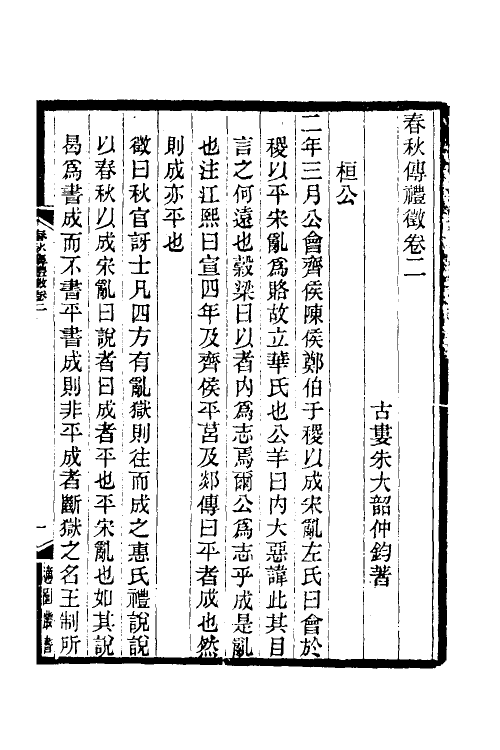 春秋傳禮徵卷二
古婁朱大韶仲鈞著
桓公
二年三月公會齊侯陳侯鄭伯于稷以成宋亂左氏曰會於
稷以平宋亂爲賂故立華氏也公羊曰內大惡諱此其目
言之何遠也穀梁曰以者內爲志焉爾公爲志乎成是亂
也注江熙曰宣四年及齊侯平莒及郯傳曰平者成也然
則成亦平也
徵曰秋官訝士凡四方有亂獄則往而成之惠氏禮說說
以春秋以成宋亂曰說者曰成者平也平宋亂也如其說
曷爲書成而不書平書成則非平成者斷獄之名王制所
春秋傳禮徵卷二
一
適園叢書